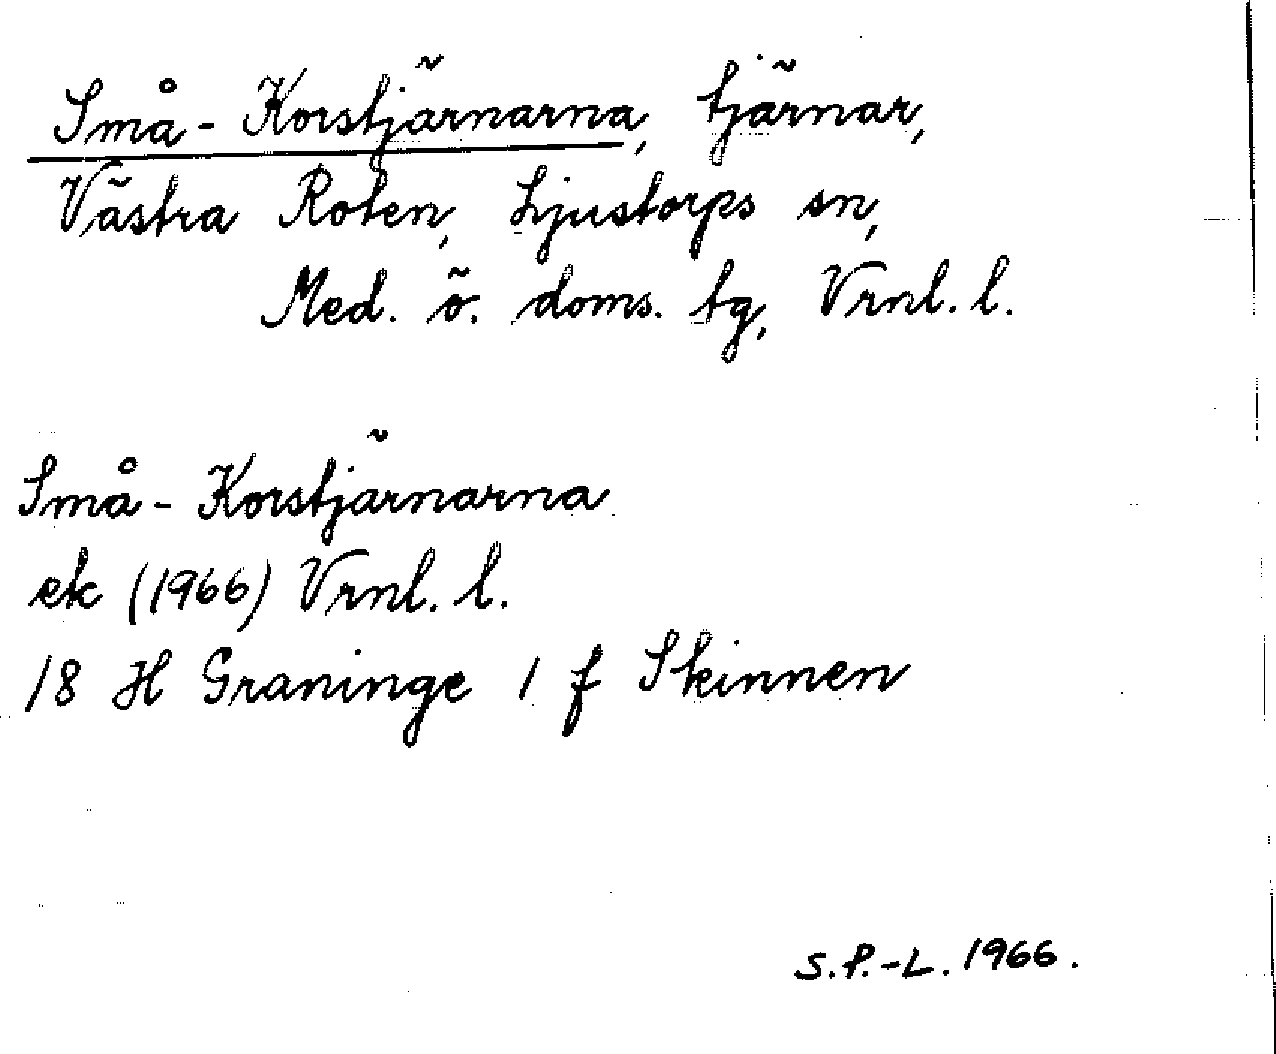 Små-Korstjärnarna, tjärnar,
Västra Roten, Ljustorps sn,
Med. ö. doms. tg, Vrnl. l.
Små-Korstjärnarna
ek (1966) Vrnl. l.
18 H Graninge 1 f Skinnen
S.P.-L. 1966.